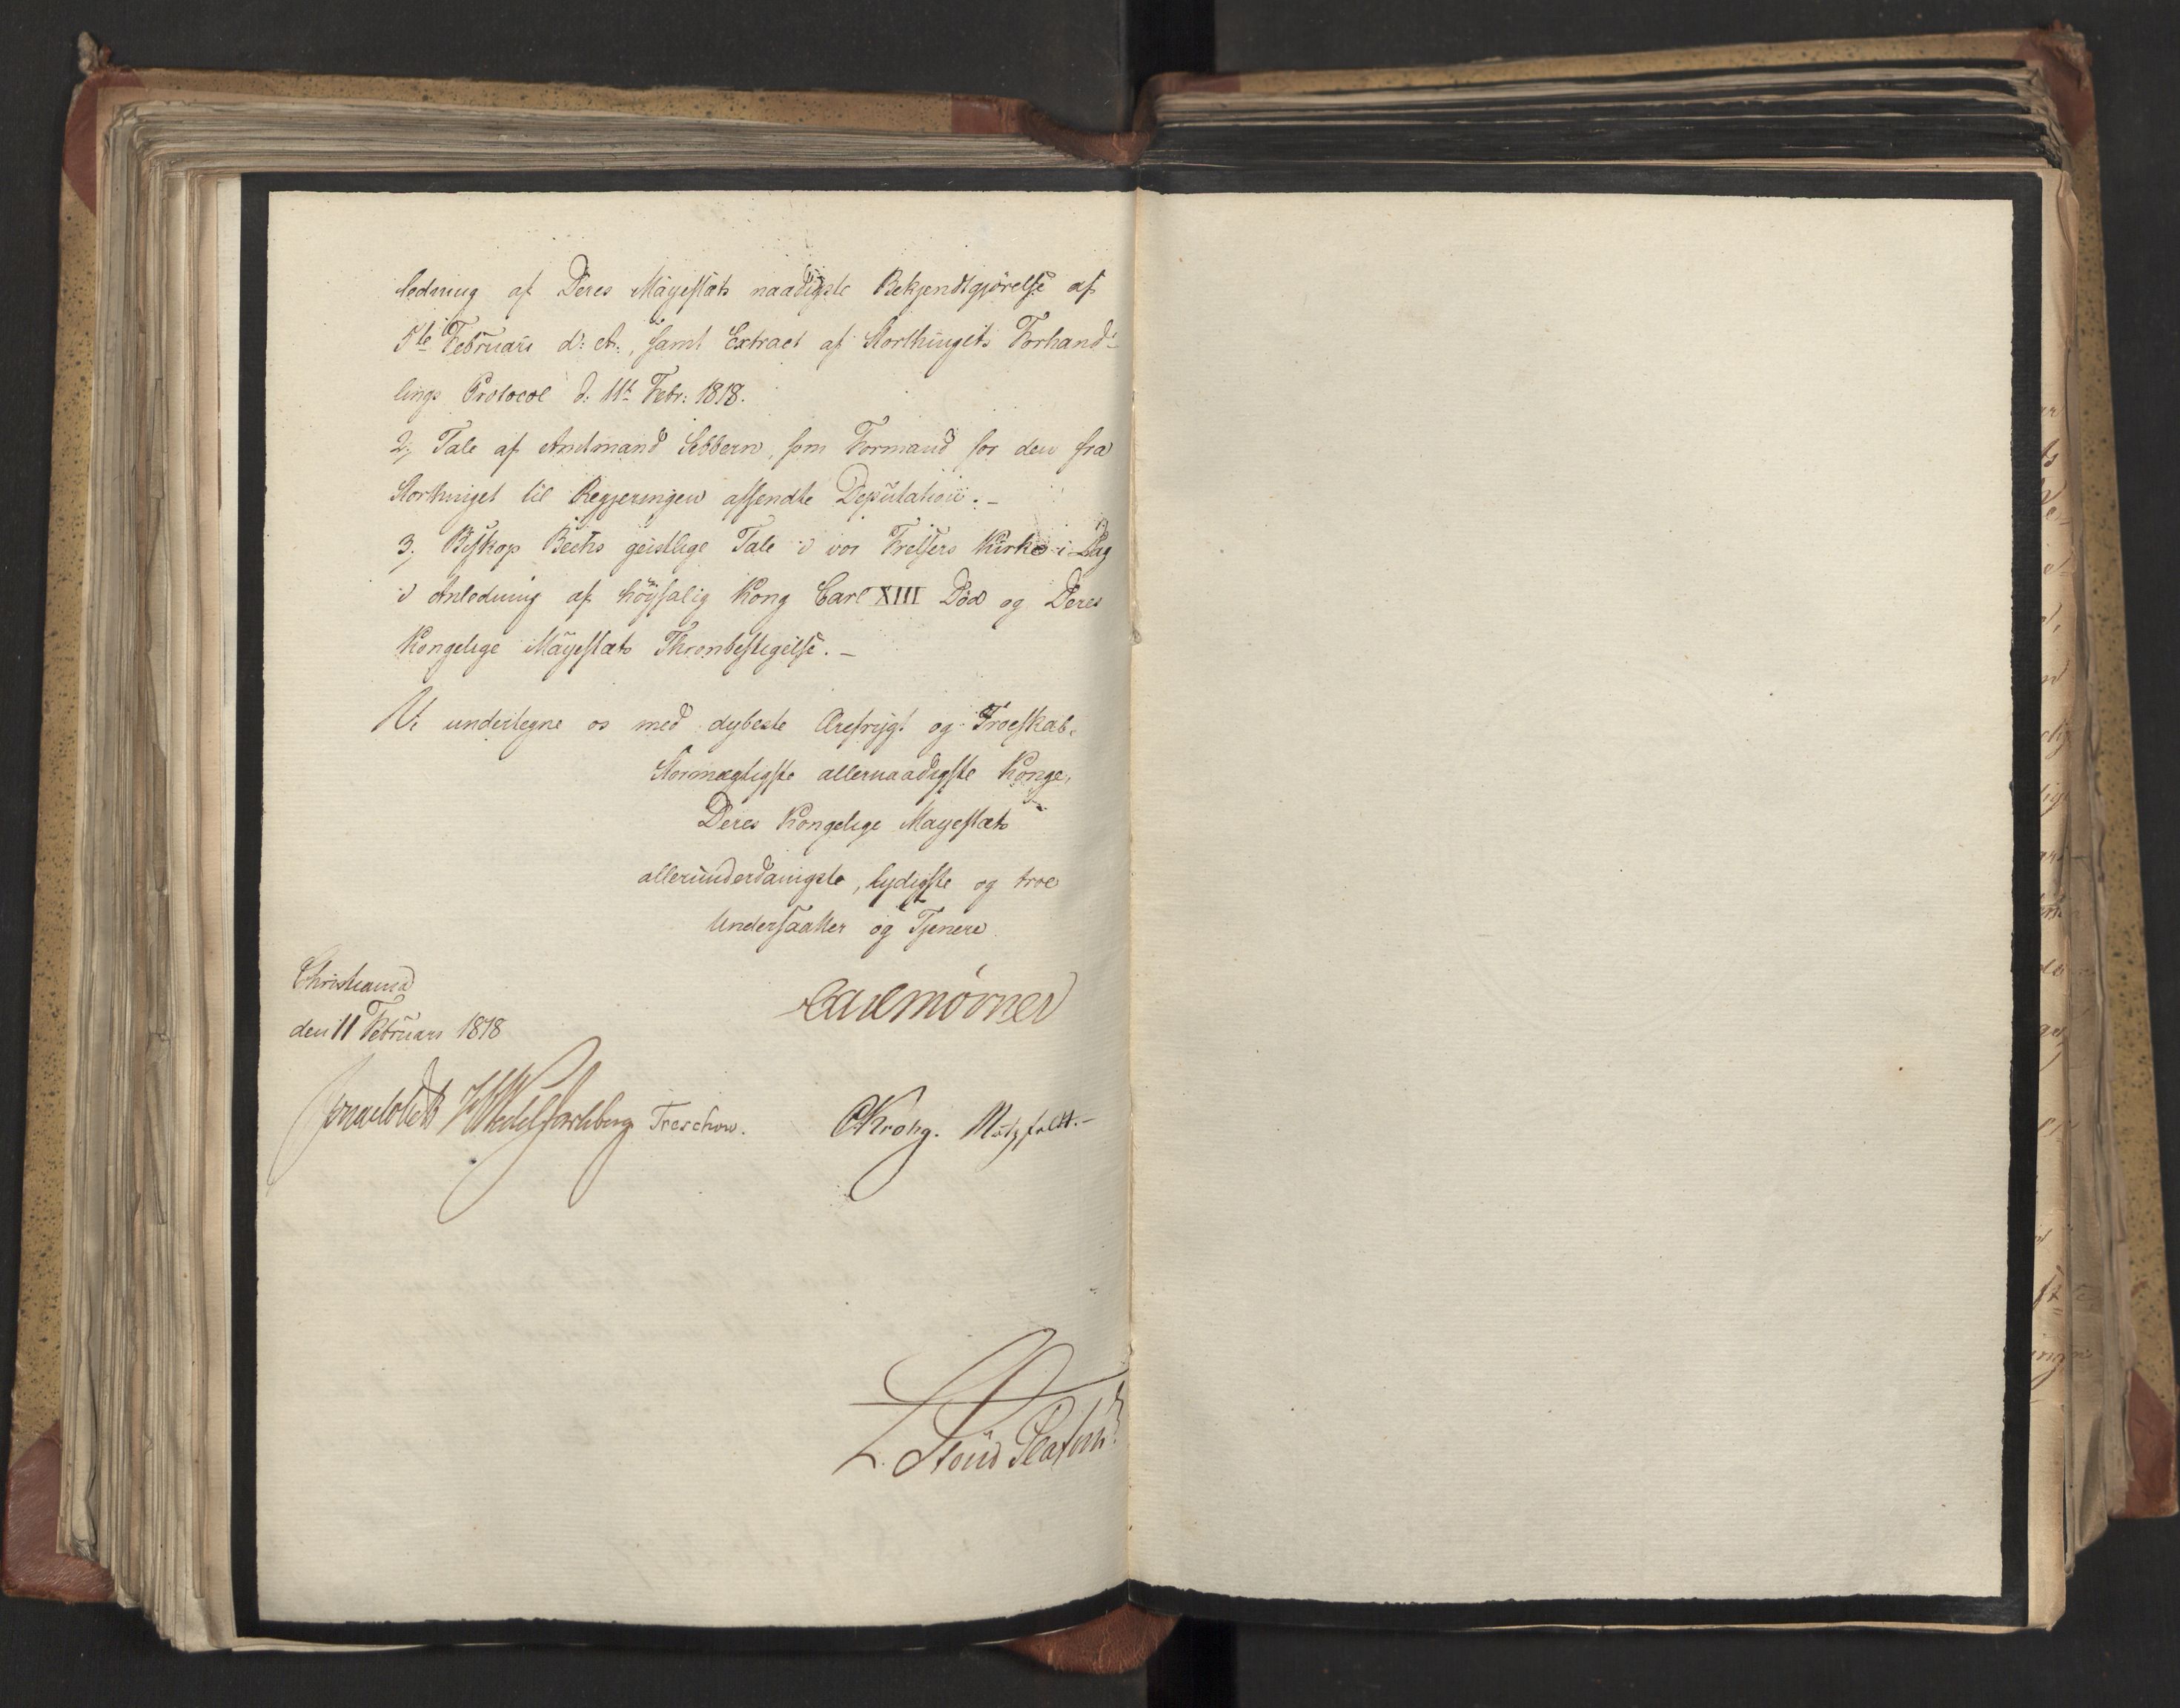 ledning af Deres Mayestæts naadigste Bekjendtgjørelse af
5te Februari d: A:, samt Extract af Storthingets Forhand-
lings Protocol d: 11te Febr: 1818.
2, Tale af Amtmand Sibbern, som Formand for den fra
Storthinget til Regjeringen affendte Deputation. -
3, Biskop Bechs geistlige Tale i vor Frelsers Kirke i Dag
i Anledning af höysalig Kong Carl XIII Död og Deres
Kongelige Mayestæts Thronbestigelse. -
Vi undertegne os med dybeste Ærefrygt og Troeskab.
Stormægtigste allernaadigste Konge,
Deres Kongelige Mayestæts
allerunderdanigste, lydigste og troe
Undersaatter og Tjenere
Christiania
den 11 Februar 1818
Carl Mörner
Wedel Jarlsberg Treschow. CKrohg. Motzfeldt. -
L. Stoud Platou